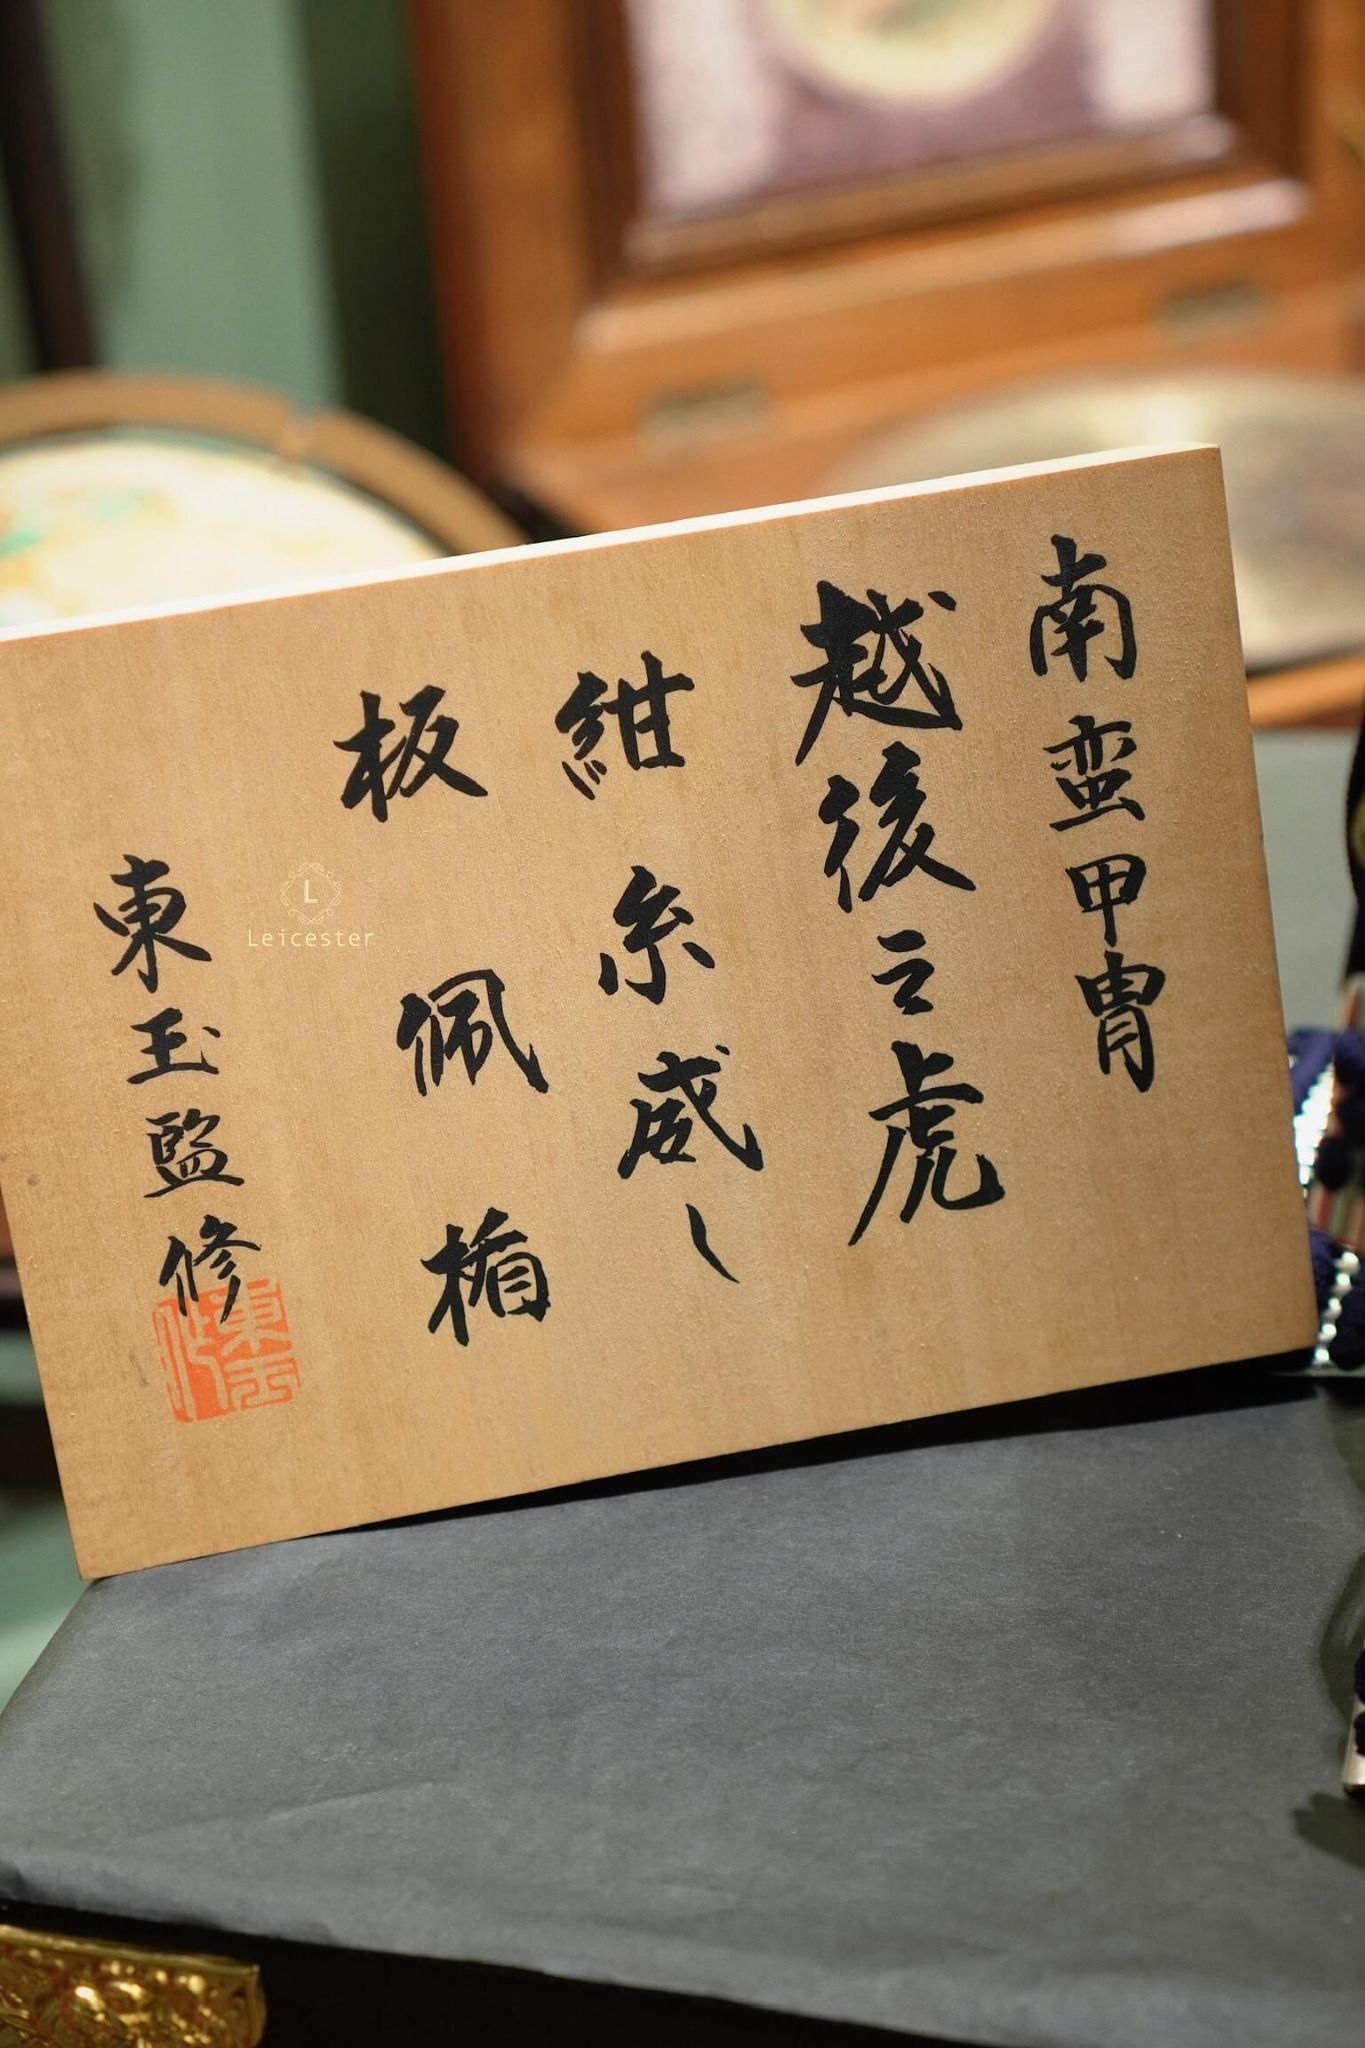 南蛮甲冑
越後之虎
紺糸威し
板佩楯
東玉監修
東玉作
L
Leicester